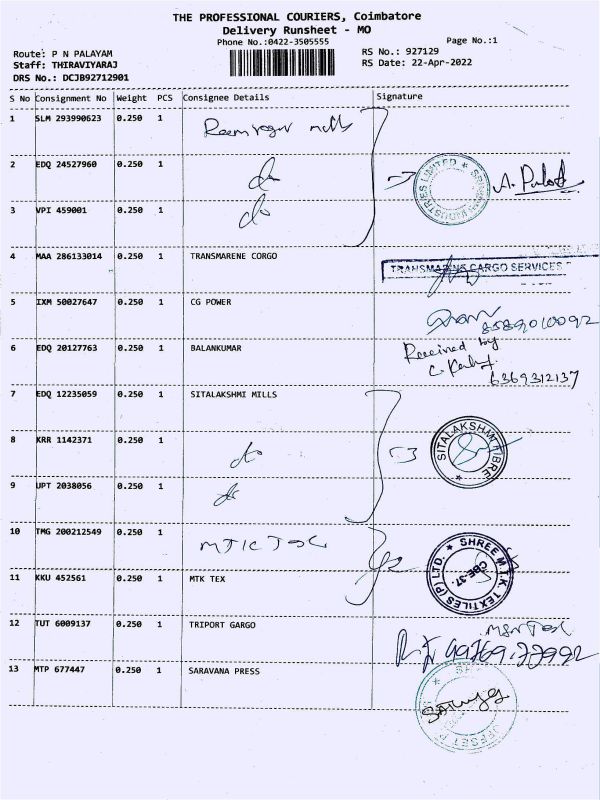 THE PROFESSIONAL COURIERS, Coimbatore
Delivery Runsheet - MO
Phone No.:0422-3505555
Page No.:1
Route: P N PALAYAM
RS No.: 927129
Staff: THIRAVIYARAJ
RS Date: 22-Apr-2022
DRS No.: DCJB92712901
S No Consignment No Weight PCS Consignee Details Signature
1 SLM 293990623 0.250 1 mills
2 EDQ 24527960 0.250 1 do
3 VPI 459001 0.250 1 do
4 MAA 286133014 0.250 1 TRANSMARENE CORGO TRANSMARINE CARGO SERVICES
5 IXM 50027647 0.250 1 CG POWER
8589010092
6 EDQ 20127763 0.250 1 BALANKUMAR Received by
6369312137
7 EDQ 12235059 0.250 1 SITALAKSHMI MILLS
8 KRR 1142371 0.250 1 do SITALAKSHMI FIBRE
9 UPT 2038056 0.250 1 do
10 TMG 200212549 0.250 1 MTK Tex
SHREE M.T.K. TEXTILES (P) LTD.
CBE-37.
11 KKU 452561 0.250 1 MTK TEX
12 TUT 6009137 0.250 1 TRIPORT GARGO
13 MTP 677447 0.250 1 SARAVANA PRESS